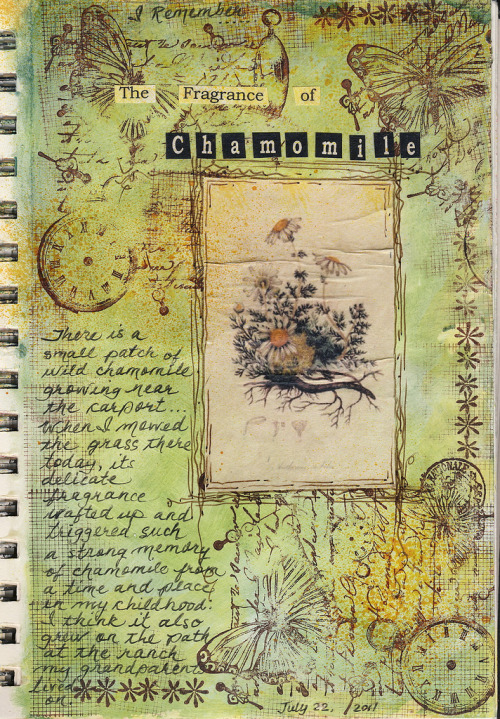 I Remember...
The Fragrance of
Chamomile
There is a
small patch of
wild chamomile
growing near
the carport...
When I mowed
the grass there
today, its
delicate
fragrance
wafted up and
triggered such
a strong memory
of chamomile from
a time and place
in my childhood.
I think it also
grew on the path
at the ranch
my grandparents
lived
on.
July 22, 2011